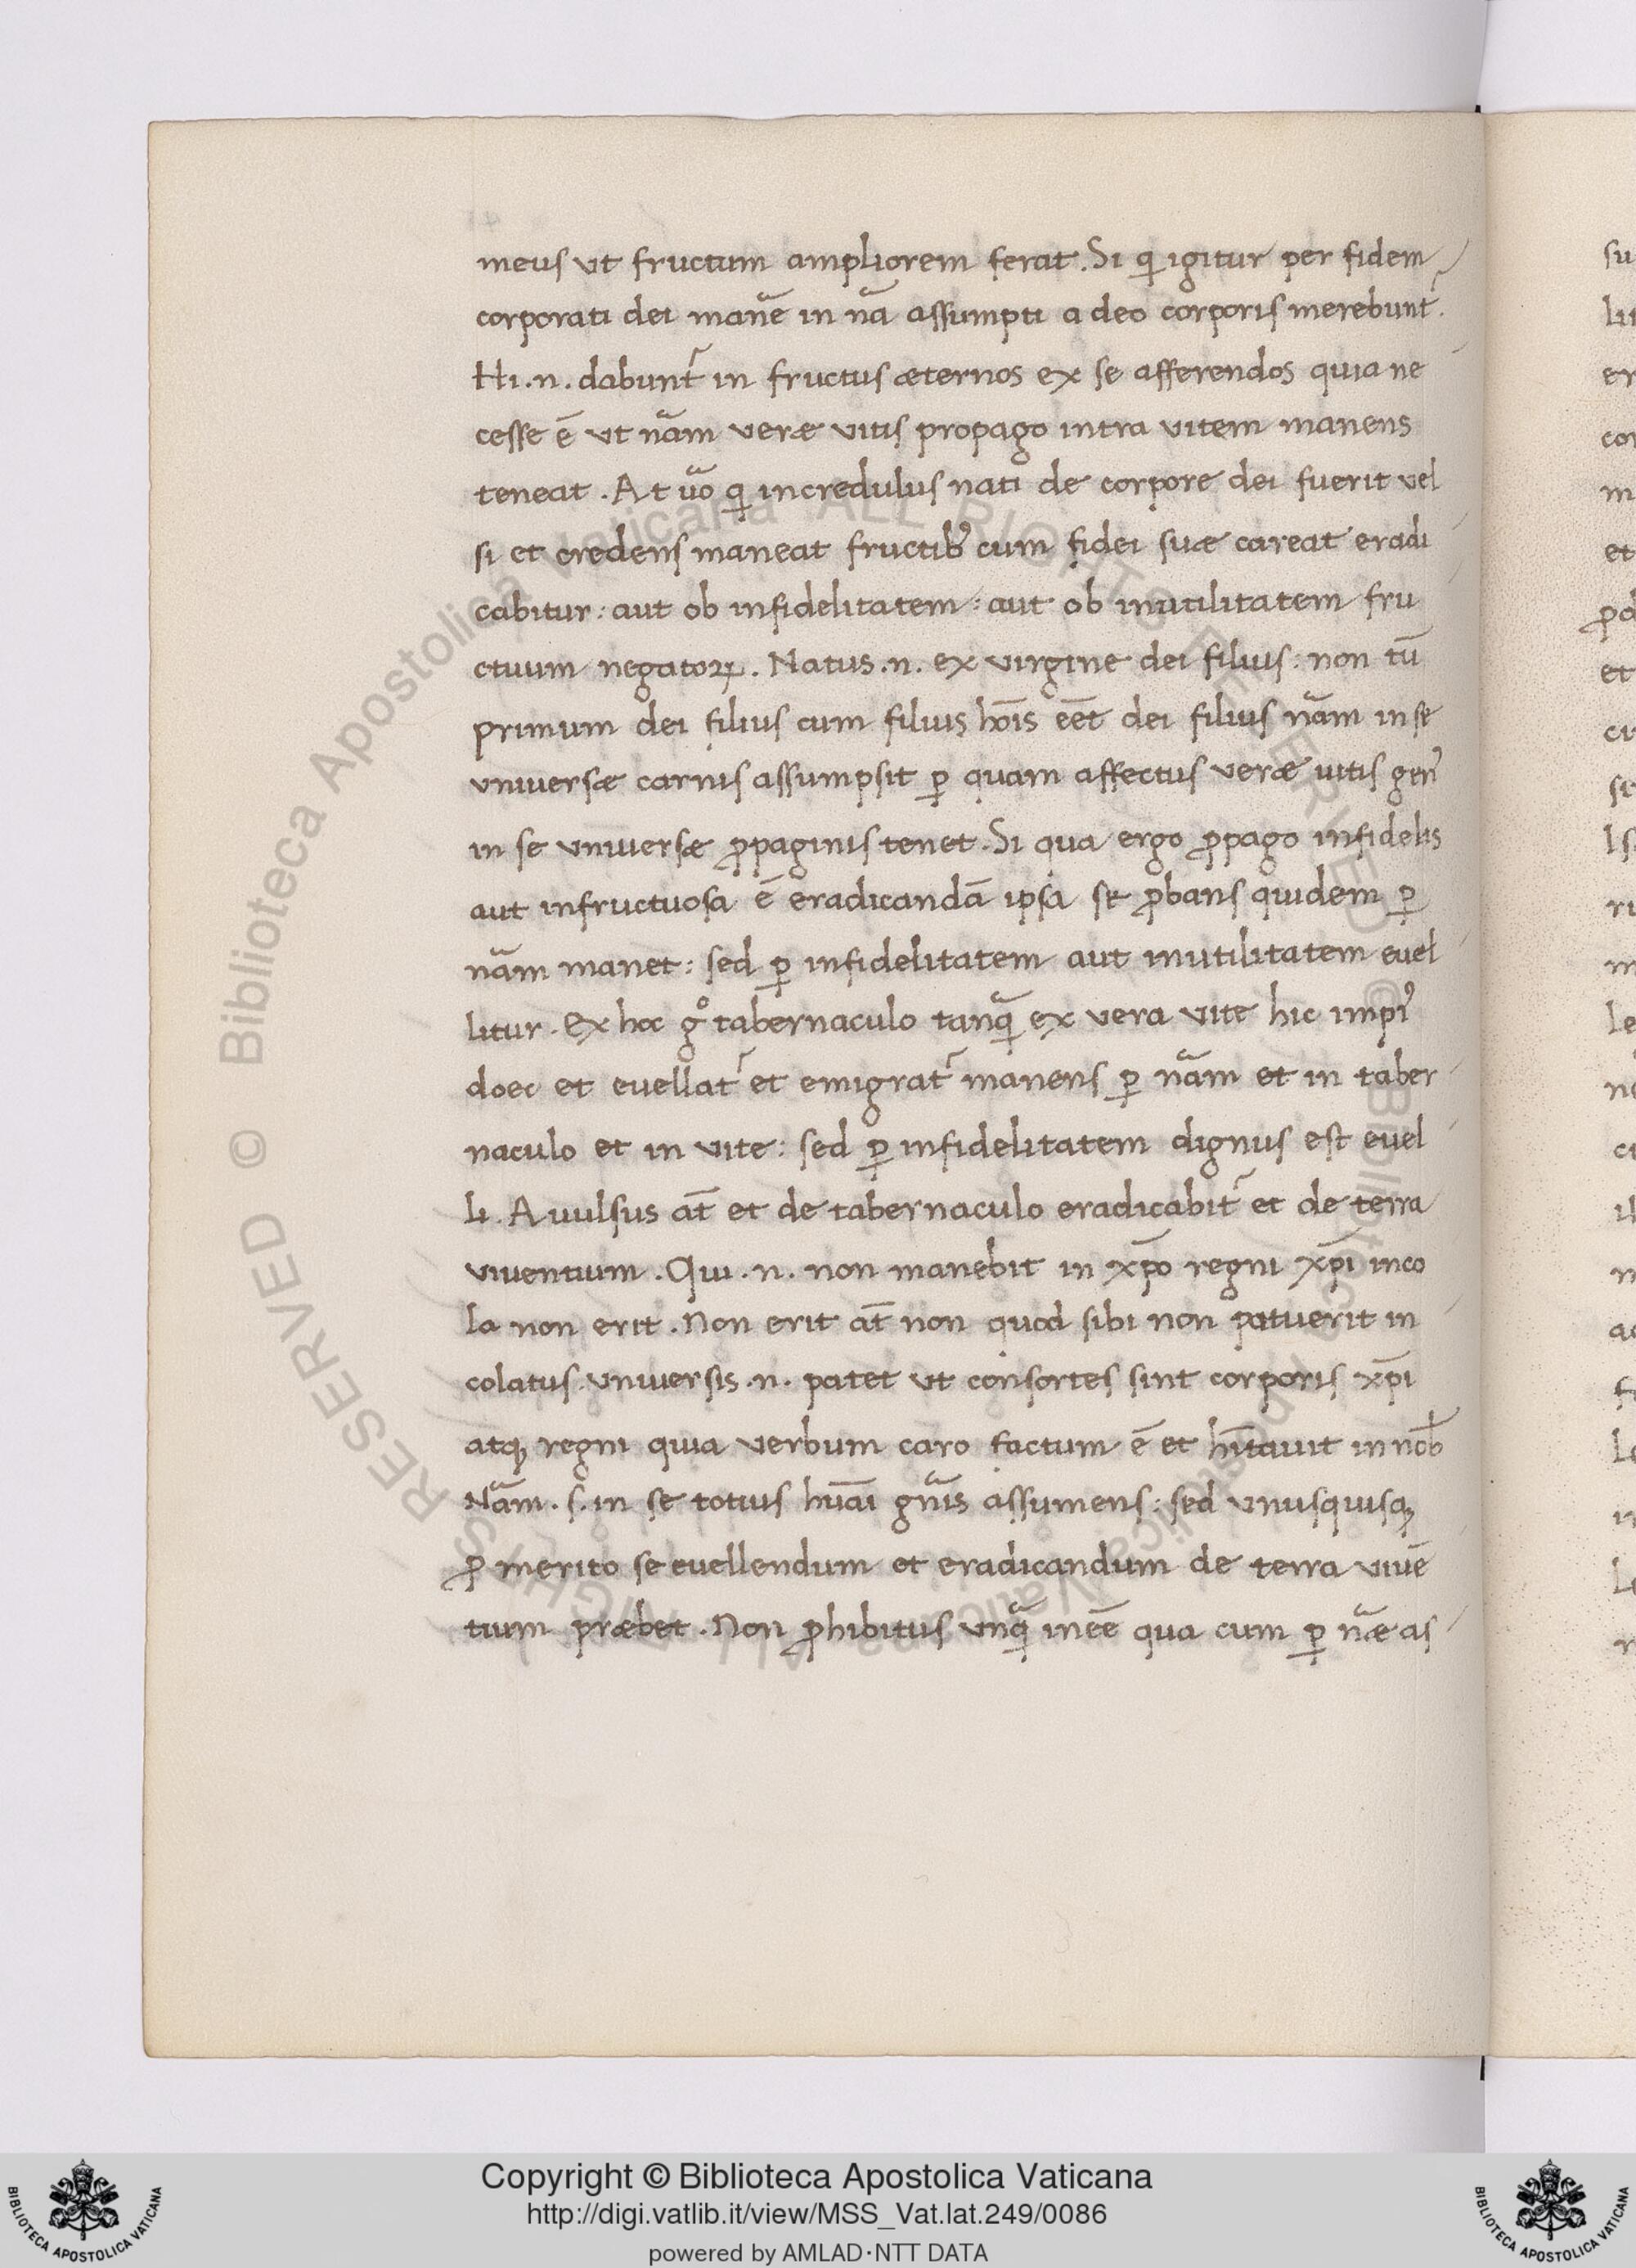 meus ut fructum ampliorem ferat. Si qi igitur per fidem
corporati dei mane in na assumpti a deo corporis merebunt.
Hi .n. dabunt in fructus æternos ex se afferendos quia ne
cesse ē ut nam veræ vitis propago intra vitem manens
teneat. At uo qi incredulus nati de corpore dei fuerit vel
si et credens maneat fructib⁹ cum fidei suæ careat eradi
cabitur: aut ob infidelitatem: aut ob inutilitatem fru
ctuum negatoꝝ. Natus .n. ex virgine dei filius: non tū
primum dei filius cum filius hōis eēt dei filius nam in se
universæ carnis assumpsit ꝑ quam affectus veræ uitis gen⁹
in se universæ ꝓpaginis tenet. Si qua ergo ꝓpago infidelis
aut infructuosa ē eradicandā ipsa se ꝓbans quidem ꝑ
nam manet: sed ꝑ infidelitatem aut inutilitatem euel
litur. Ex hoc gͦ tabernaculo tanq̃ ex vera vite hic impi⁹
doec et evellat et emigrat manens ꝑ nam et in taber
naculo et in vite: sed ꝑ infidelitatem dignus est evel
li. Avulsus at̄ et de tabernaculo eradicabit et de terra
viventium. Qui .n. non manebit in xp̄o regni xp̄i inco
la non erit. Non erit at̄ non quod sibi non patuerit in
colatus. universis .n. patet ut consortes sint corporis xp̄i
atqꝫ regni quia verbum caro factum ē et hītavit in nob
Nam .s. in se totius huāi gnis assumens: sed unusquisqꝫ
ꝓ merito se evellendum et eradicandum de terra vivē
tium præbet. Non ꝓhibitus unq̃ ineē qua cum ꝑ næ as
su
et
Copyright © Biblioteca Apostolica Vaticana
http://digi.vatlib.it/view/MSS_Vat.lat.249/0086
powered by AMLAD·NTT DATA
BIBLIOTECA APOSTOLICA VATICANA
BIBLIOTECA APOSTOLICA VATICANA
© Biblioteca Apostolica Vaticana ALL RIGHTS RESERVED © Biblioteca Apostolica Vaticana ALL RIGHTS RESERVED